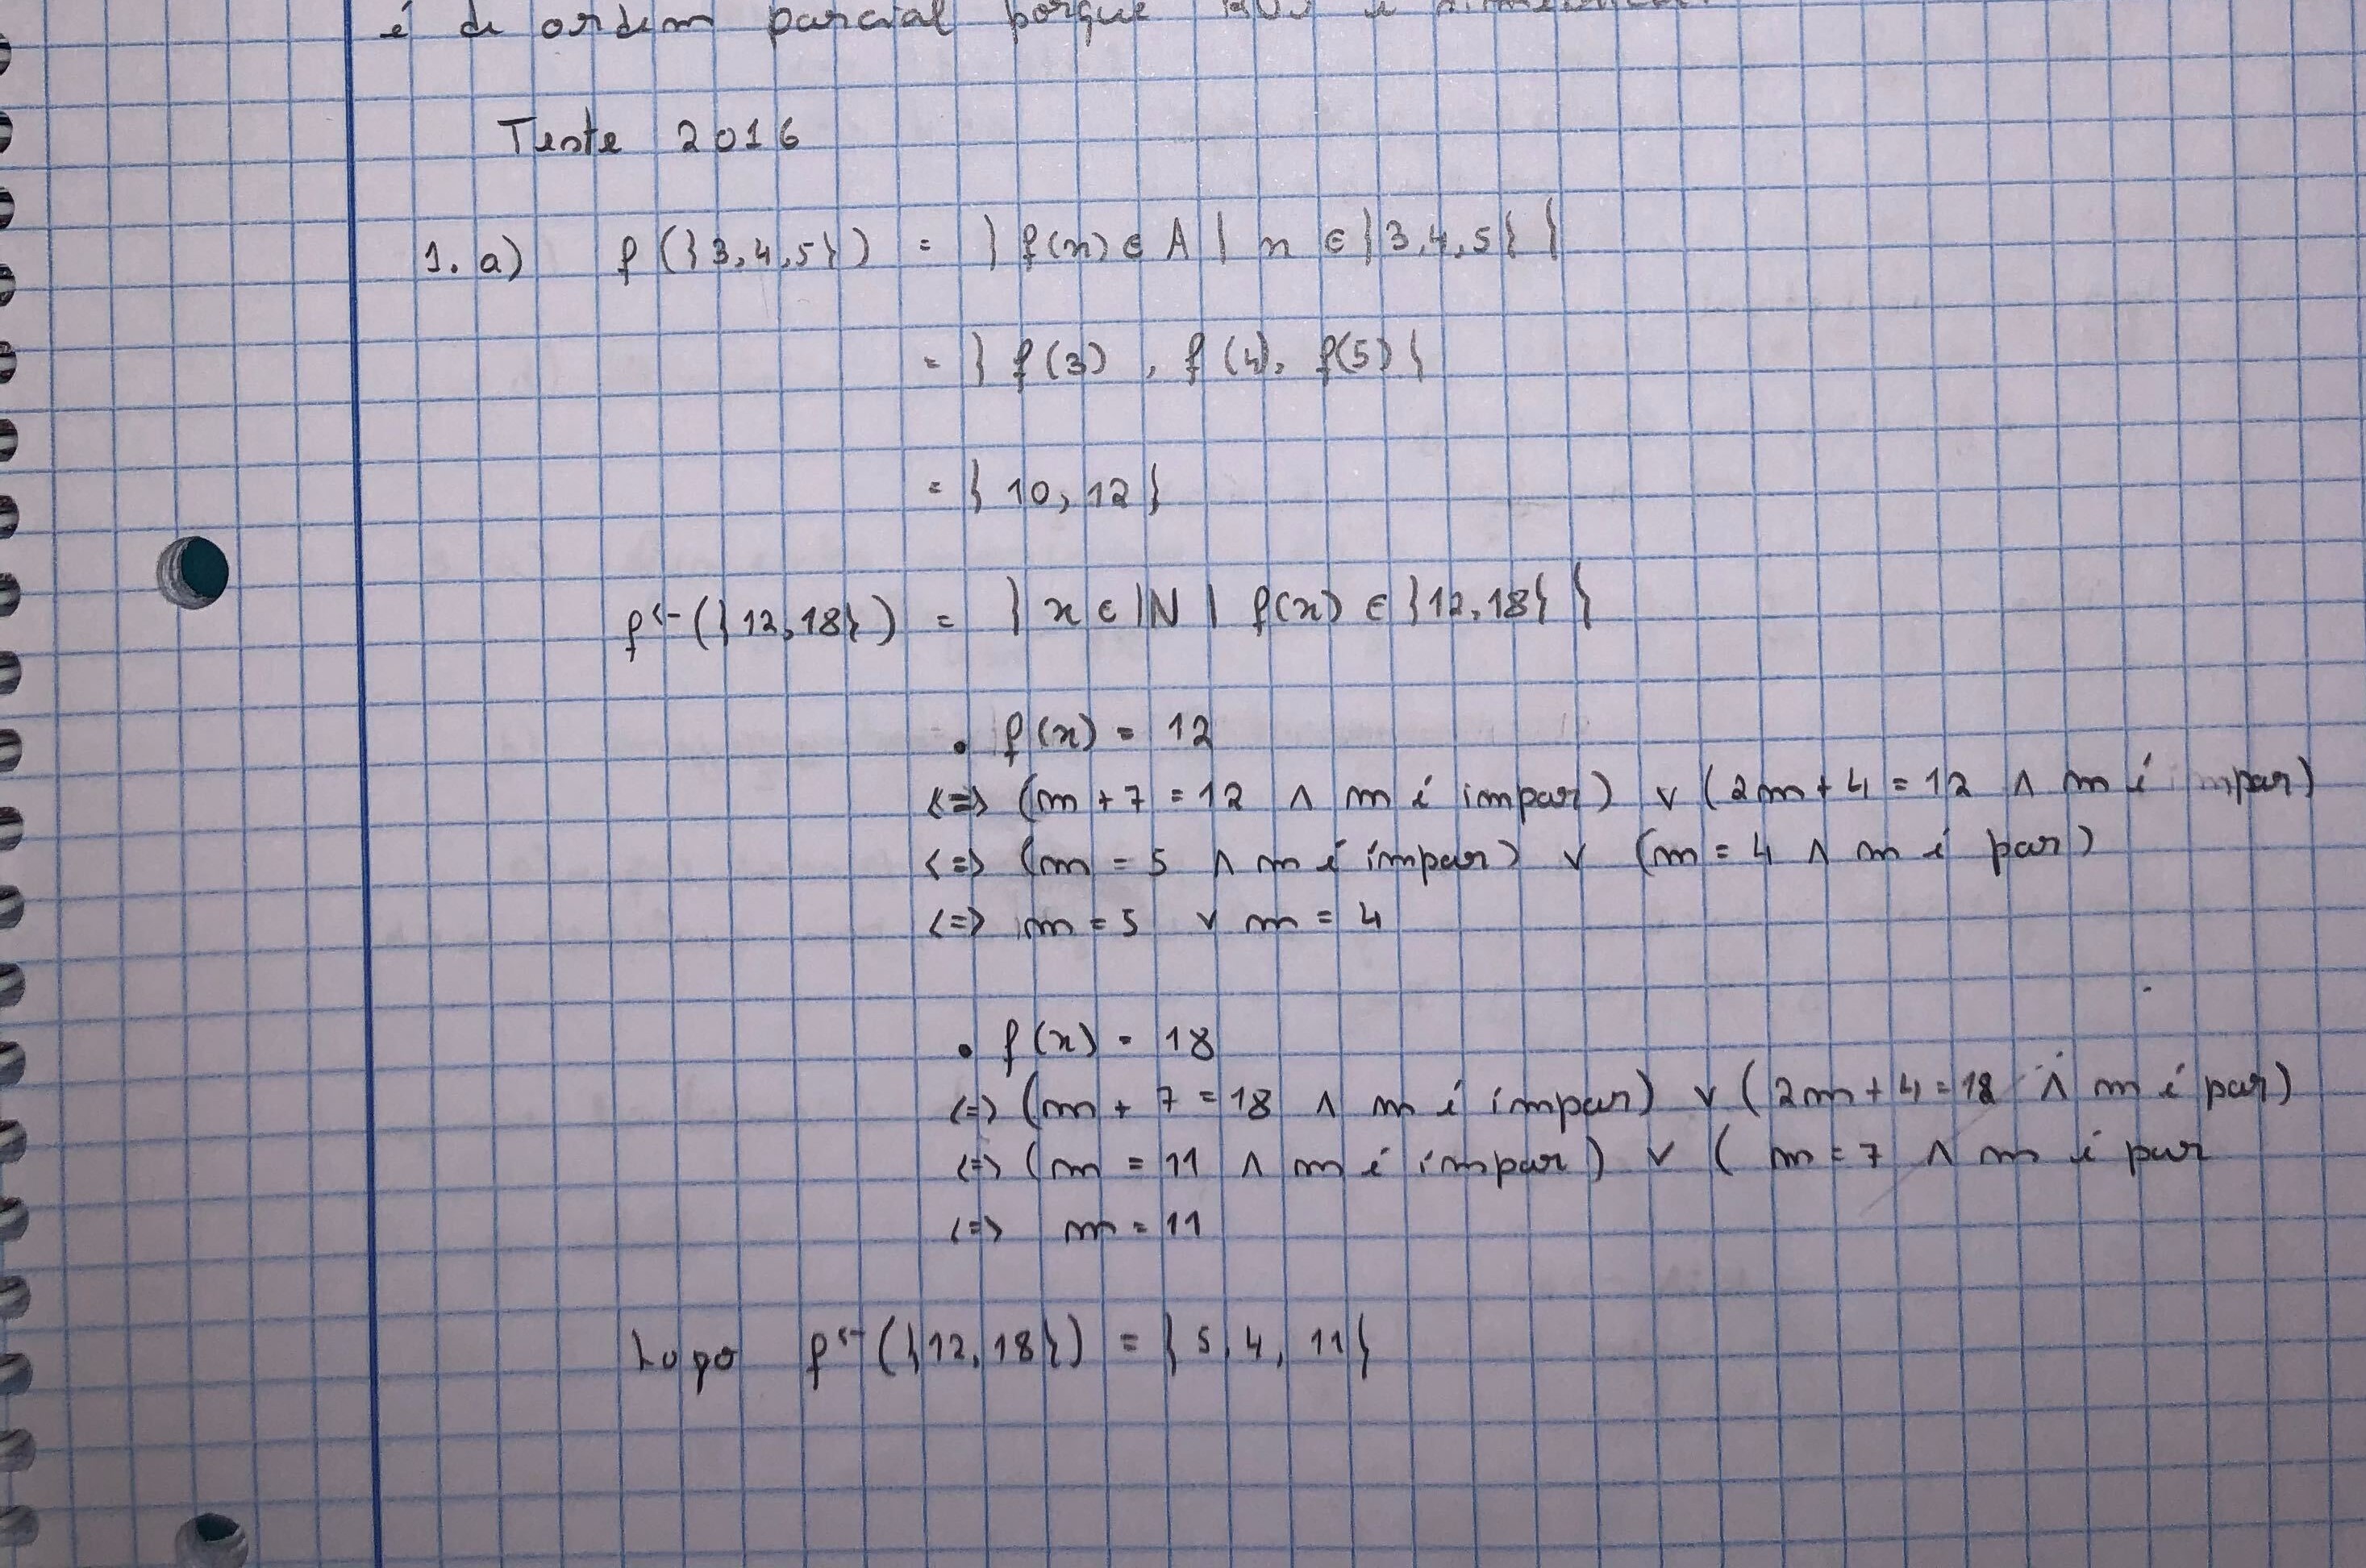 é de ordem parcial porque é
Teste 2016
1. a) f({3,4,5}) = {f(n) ∈ A | n ∈ {3,4,5}}
= {f(3), f(4), f(5)}
= {10, 12}
f<-({12,18}) = {x ∈ IN | f(x) ∈ {12,18}}
• f(x) = 12
<=> (m + 7 = 12 ∧ m é impar) ∨ (2m + 4 = 12 ∧ m é par)
<=> (m = 5 ∧ m é ímpar) ∨ (m = 4 ∧ m é par)
<=> m = 5 ∨ m = 4
• f(x) = 18
<=> (m + 7 = 18 ∧ m é impar) ∨ (2m + 4 = 18 ∧ m é par)
<=> (m = 11 ∧ m é ímpar) ∨ (m = 7 ∧ m é par
<=> m = 11
Logo f<-({12,18}) = {5, 4, 11}